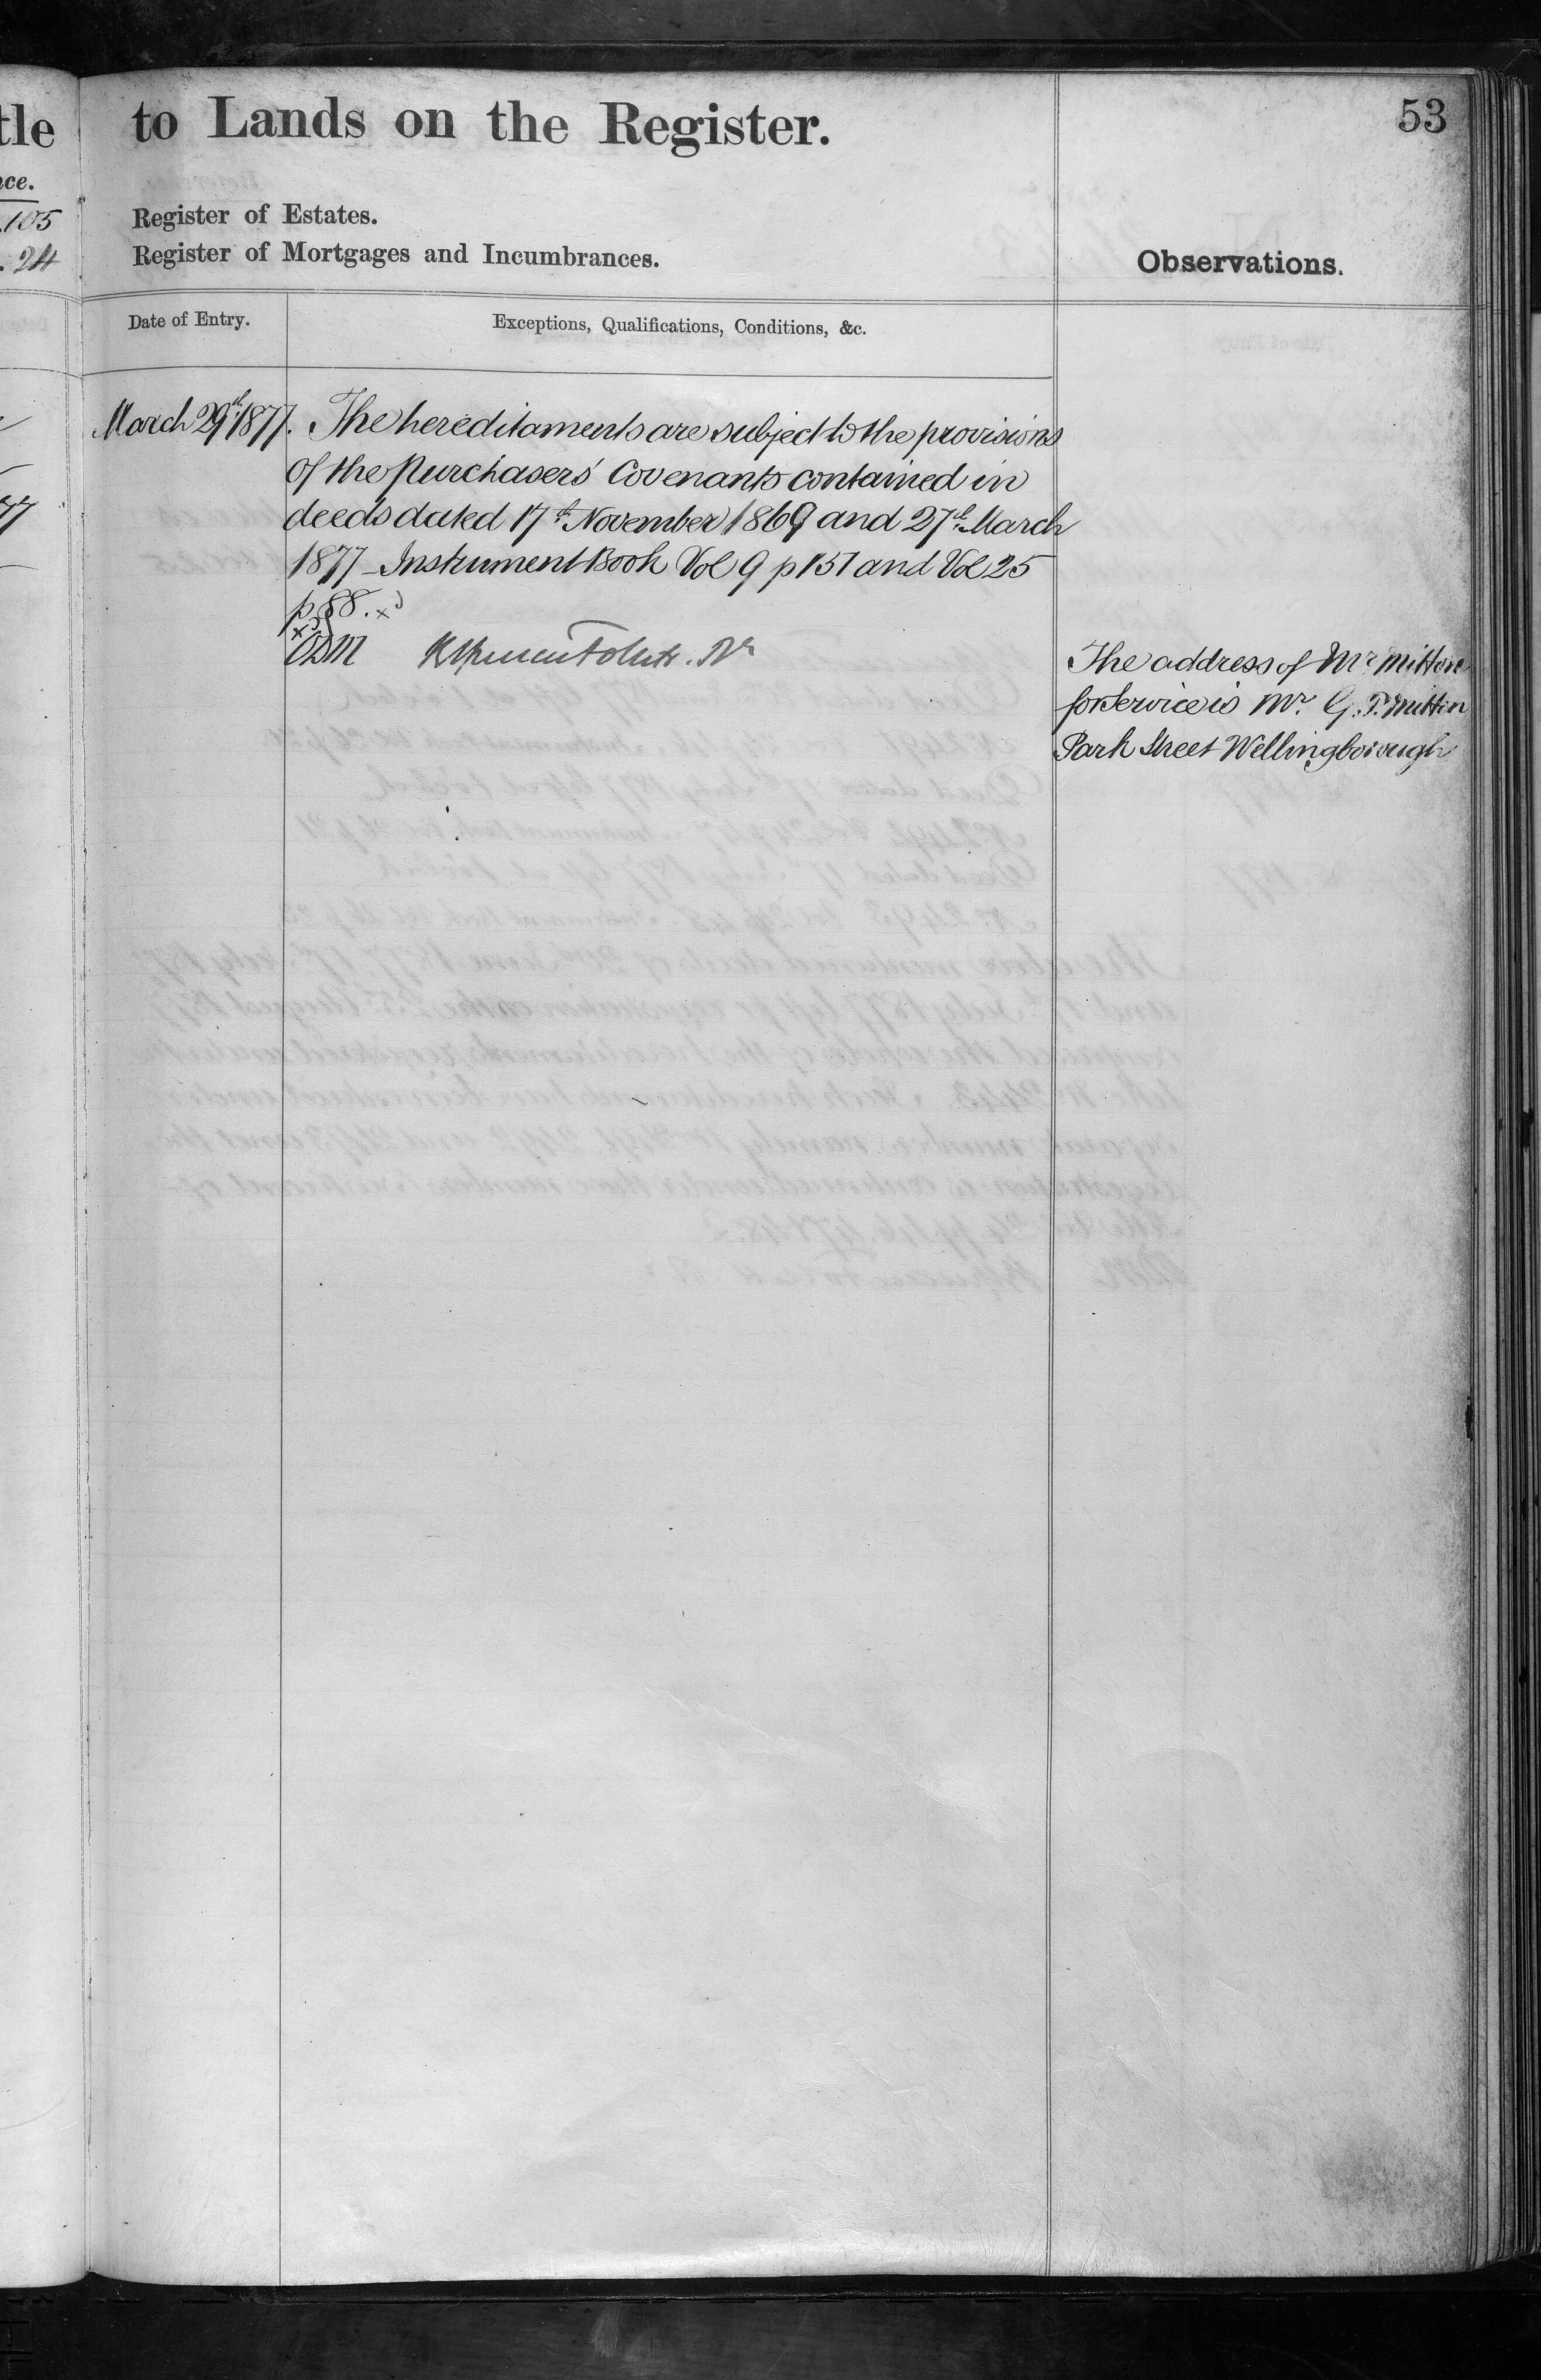 tle
ce.
105
24
77
to Lands on the Register.
53
Register of Estates.
Register of Mortgages and Incumbrances.
Observations.
Date of Entry.
Exceptions, Qualifications, Conditions, &c.
March 29th 1877. The hereditaments are subject to the provisions
of the Purchasers' Covenants contained in
deeds dated 17th November 1869 and 27th March
1877 - Instrument Book Vol 9 p 151 and Vol 25
p 88. x
The address of Mr Mitton
for Service is Mr. G. P. Mitton
Park Street Wellingborough